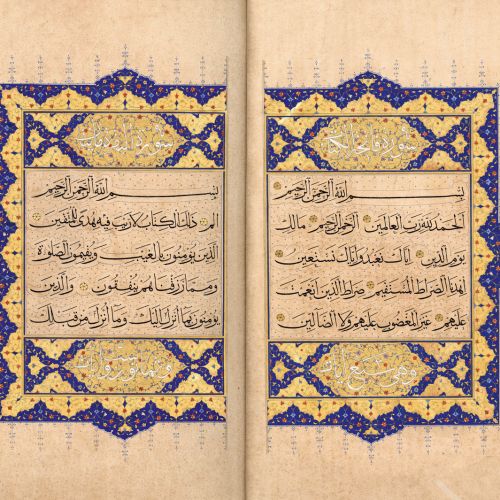 سورة فاتحة الكتاب
بسم الله الرحمن الرحيم
الحمد لله رب العالمين الرحمن الرحيم مالك
يوم الدين اياك نعبد واياك نستعين
اهدنا الصراط المستقيم صراط الذين انعمت
عليهم غير المغضوب عليهم ولا الضالين
وهي سبع آيات
سورة
بسم الله الرحمن الرحيم
الم ذلك الكتاب لا ريب فيه هدى للمتقين
الذين يؤمنون بالغيب ويقيمون الصلوة
ومما رزقناهم ينفقون والذين
يؤمنون بما انزل اليك وما انزل من قبلك